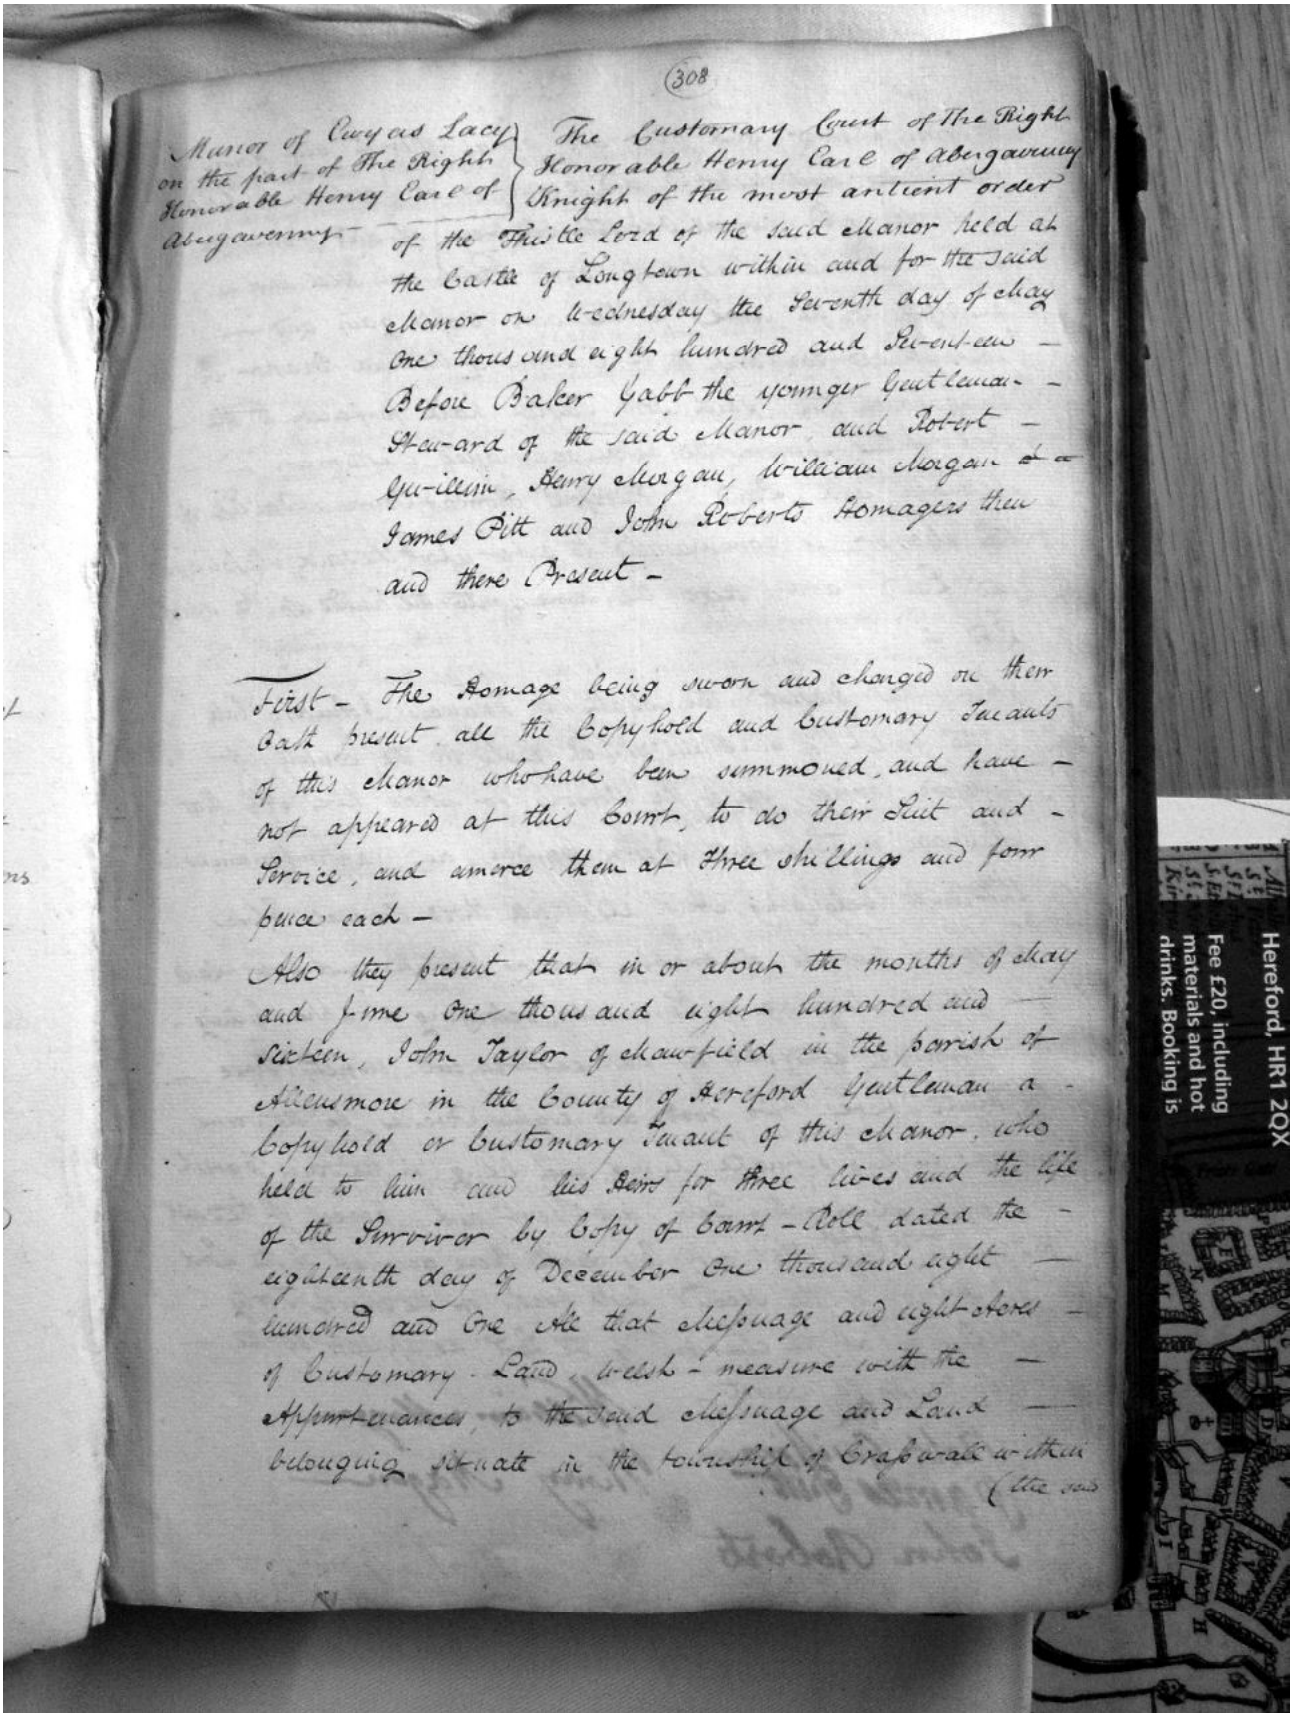 308
Manor of Ewyas Lacy
on the part of The Right
Honorable Henry Earl of
Abergavenny -
The Customary Court of The Right
Honorable Henry Earl of Abergavenny
Knight of the most antient order
of the Thistle Lord of the said Manor held at
the Castle of Longtown within and for the said
Manor on Wednesday the Seventh day of May
One thousand eight hundred and Seventeen -
Before Baker Gabb the younger Gentleman -
Steward of the said Manor, and Robert -
Gwillim, Henry Morgan, William Morgan
James Pitt and John Roberts Homagers then
and there Present -
First - The Homage being sworn and charged on their
Oath present all the Copyhold and Customary Tenants
of this Manor who have been summoned, and have -
not appeared at this Court, to do their Suit and -
Service, and amerce them at Three shillings and four
pence each -
Also they present that in or about the months of May
and June One thousand eight hundred and -
Sixteen, John Taylor of Mawfield in the parish of
Allensmore in the County of Hereford Gentleman a -
Copyhold or Customary Tenant of this Manor, who
held to him and his Heirs for three lives and the life
of the Survivor by Copy of Court-Roll dated the -
eighteenth day of December One thousand eight -
hundred and One All that Messuage and eight Acres -
of Customary Land, Welsh-measure with the -
Appurtenances, to the said Messuage and Land -
belonging situate in the township of Crasswall within
(the said
Hereford, HR1 2QX
Fee £20, including
materials and hot
drinks. Booking is